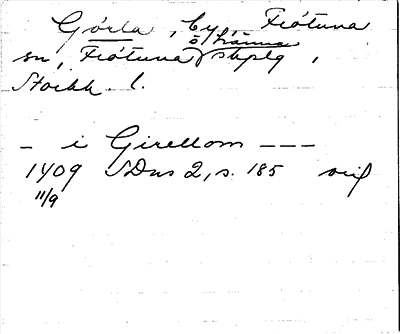 Görla, by, Frötuna
sn, Frötuna o Länna skplg,
Stockh. l.
— i Girellom ———
1409 SDns 2, s. 185 or
11/9